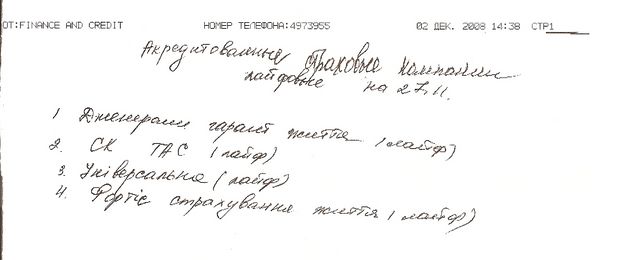 ОТ:FINANCE AND CREDIT НОМЕР ТЕЛЕФОНА:4973955 02 ДЕК. 2008 14:38 СТР1
Акредитованные страховые компании
лайфовые на 27,11.
1 Дженерали гарант життя (лайф)
2. СК ТАС (лайф)
3. Універсальна (лайф)
4. Фортіс страхування життя (лайф)